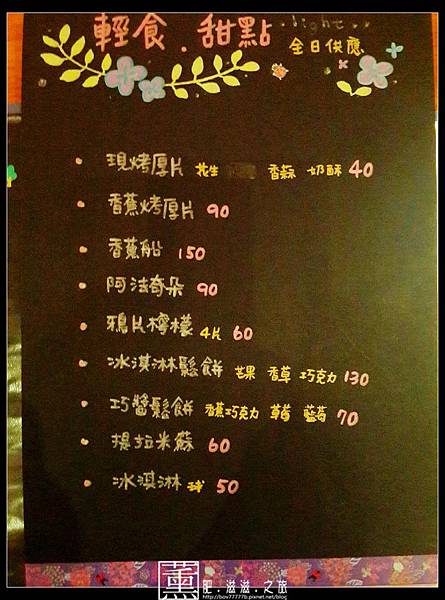 輕食.甜點 light
全日供應
現烤厚片 花生 香蒜 奶酥 40
香蕉烤厚片 90
香蕉船 150
阿法奇朵 90
鴉片檸檬 4片 60
冰淇淋鬆餅 芒果 香草 巧克力 130
巧醬鬆餅 香蕉巧克力 草莓 藍莓 70
提拉米蘇 60
冰淇淋 球 50
薰 肥.滋滋.之旅
http://boy77777b.pixnet.net/blog